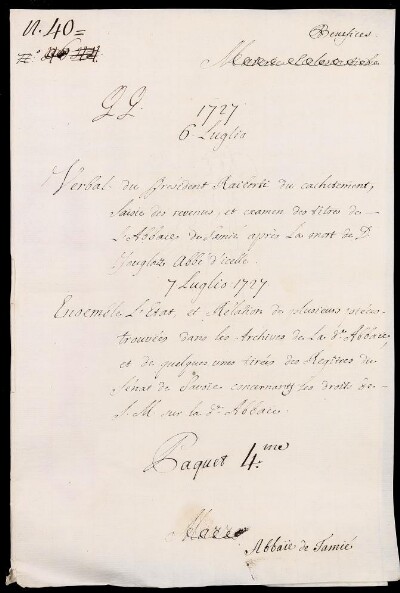 N. 40=
Benefices.
G G.
1727
6 Luglio
Verbal du president Raiberti du cachetement,
saisie des revenus, et examen des titres de
l'Abbaie de Tamié après la mort de D.
Abbé d'icelle.
7 Luglio 1727
Ensemble l'Etat, et Rélation de plusieurs pièces
trouvées dans les Archives de la d.te Abbaie,
et de quelques unes tirées des Regîtres du
Sénat de Savoie concernants les droits de
S. M. sur la d.te Abbaie.
Paquet 4.me
Abbaïe de Tamié